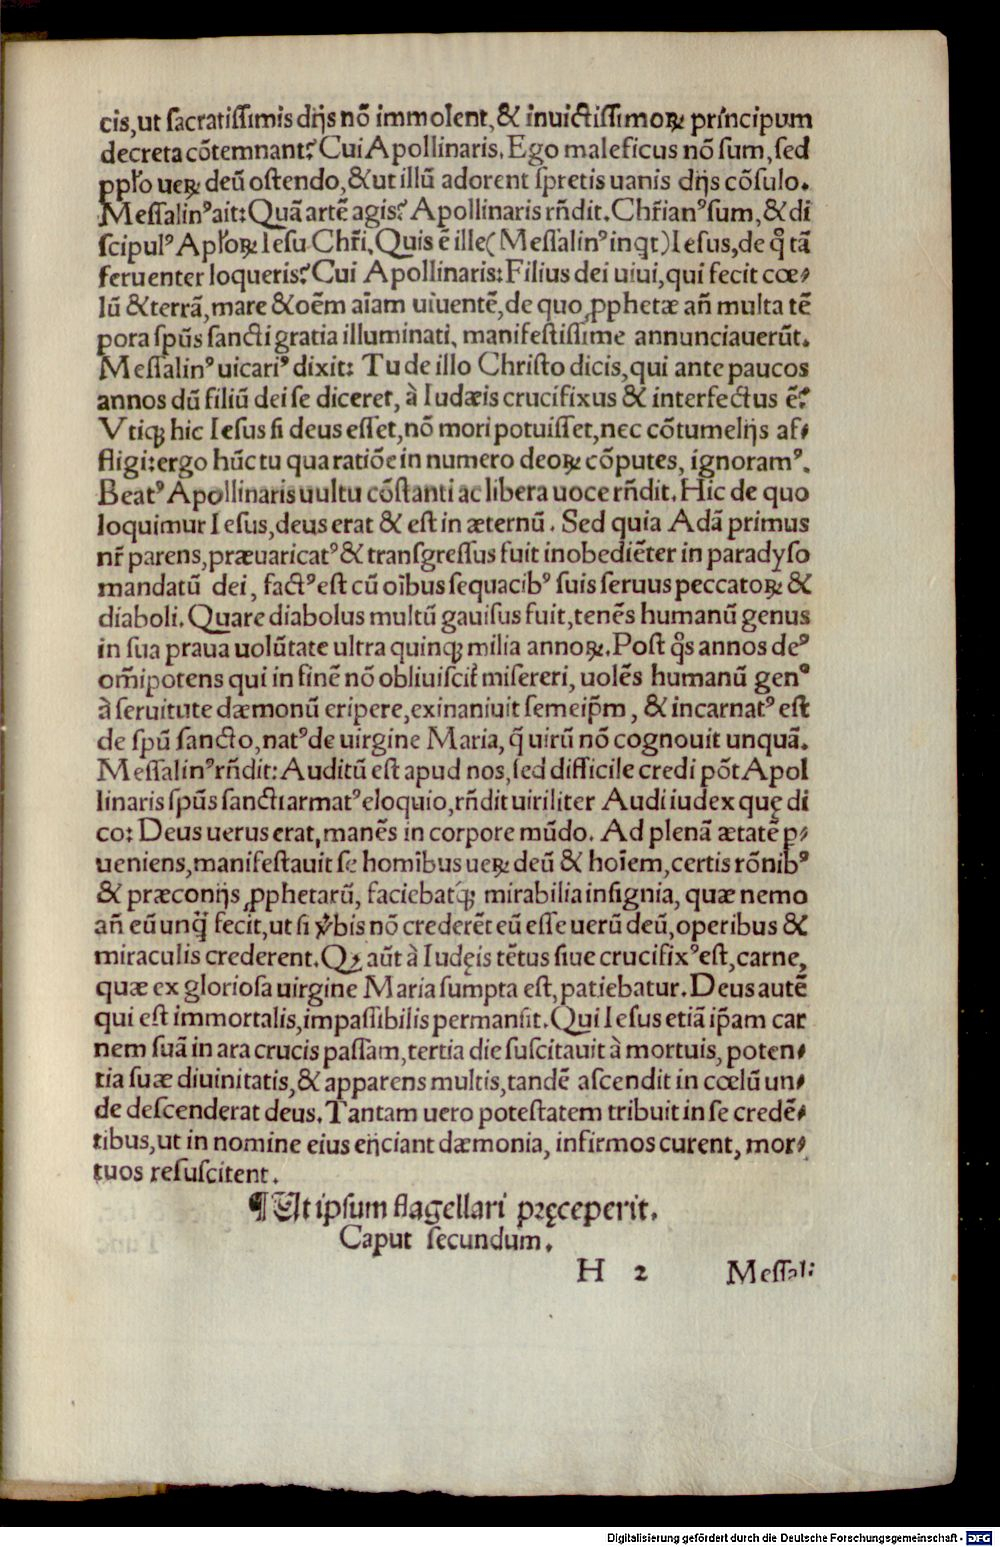 cis,ut sacratissimis dijs nõ immolent,& inuictissimoꝝ principum
decreta cõtemnant? Cui Apollinaris. Ego maleficus nõ sum,sed
ppƚo ueꝝ deũ ostendo,& ut illũ adorent spretis uanis dijs cõsulo.
Messalinꝰ ait: Quã artẽ agis? Apollinaris rñdit. Chr̃ianꝰ sum,& di
scipulꝰ Apƚoꝝ Iesu Chr̃i. Quis ẽ ille( Messalinꝰ inqt̃) Iesus,de q̊ tã
feruenter loqueris? Cui Apollinaris: Filius dei uiui,qui fecit cœ⸗
lũ & terrã,mare & oẽm aĩam uiuentẽ,de quo ꝓphetæ añ multa tẽ
pora spũs sancti gratia illuminati, manifestissime annunciauerũt.
Messalinꝰ uicariꝰ dixit: Tu de illo Christo dicis,qui ante paucos
annos dũ filiũ dei se diceret, à Iudæis crucifixus & interfectus ẽ?
Vtiqꝫ hic Iesus si deus esset,nõ mori potuisset,nec cõtumelijs af⸗
fligi: ergo hũc tu qua ratiõe in numero deoꝝ cõputes, ignoramꝰ.
Beatꝰ Apollinaris uultu cõstanti ac libera uoce rñdit. Hic de quo
loquimur Iesus,deus erat & est in æternũ. Sed quia Adã primus
nr̃ parens,præuaricatꝰ & transgressus fuit inobediẽter in paradyso
mandatũ dei, factꝰ est cũ oĩbus sequacibꝰ suis seruus peccatoꝝ &
diaboli. Quare diabolus multũ gauisus fuit,tenẽs humanũ genus
in sua praua uolũtate ultra quinqꝫ milia annoꝝ. Post q̊s annos deꝰ
om̃ipotens qui in finẽ nõ obliuiscit̃ misereri, uolẽs humanũ genꝰ
à seruitute dæmonũ eripere,exinaniuit semeip̃m, & incarnatꝰ est
de spũ sancto,natꝰ de uirgine Maria,q̃ uirũ nõ cognouit unquã.
Messalinꝰ rñdit: Auditũ est apud nos,sed difficile credi põt Apol
linaris spũs sancti armatꝰ eloquio,rñdit uiriliter Audi iudex quę di
co: Deus uerus erat,manẽs in corpore mũdo. Ad plenã ætatẽ p⸗
ueniens,manifestauit se homĩbus ueꝝ deũ & hoĩem,certis rõnibꝰ
& præconijs ꝓphetarũ, faciebatqꝫ mirabilia insignia, quæ nemo
añ eũ unq̃ fecit,ut si ỽbis nõ crederẽt eũ esse uerũ deũ,operibus &
miraculis crederent. Qꝫ aũt à Iudęis tẽtus siue crucifixꝰ est,carne,
quæ ex gloriosa uirgine Maria sumpta est,patiebatur. Deus autẽ
qui est immortalis,impassibilis permansit. Qui Iesus etiã ip̃am car
nem suã in ara crucis passam,tertia die suscitauit à mortuis, poten⸗
tia suæ diuinitatis,& apparens multis,tandẽ ascendit in cœlũ un⸗
de descenderat deus. Tantam uero potestatem tribuit in se credẽ⸗
tibus,ut in nomine eius eijciant dæmonia, infirmos curent, mor⸗
tuos resuscitent.
¶ Ut ipsum flagellari pręceperit.
Caput secundum.
H 2 Messali
Digitalisierung gefördert durch die Deutsche Forschungsgemeinschaft - DFG